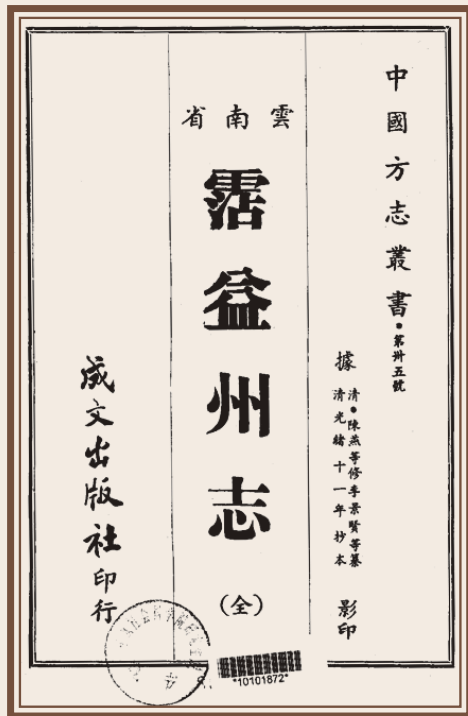 中國方志叢書•第卅五號
據 清•陳燕等修李景賢等纂
清光緒十一年抄本 影印
雲南省
霑益州志
(全)
成文出版社印行
*10101872*